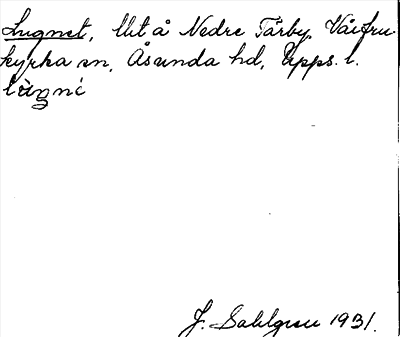 Lugnet, llt å Nedre Tärby, Vårfru
kyrka sn, Åsunda hd, Upps. l.
J. Sahlgren 1931.